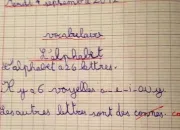 septembre 2012
vocabulaire
L'alphabet
L'alphabet a 26 lettres.
Il y a 6 voyelles a-e-i-o-u-y
Les autres lettres sont des consonnes.